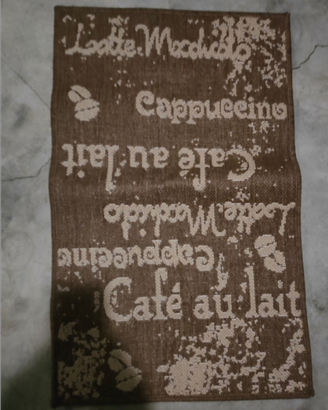 Latte Machiato
Cappuccino
Café au lait
Latte Machiato
Cappuccino
Café au lait